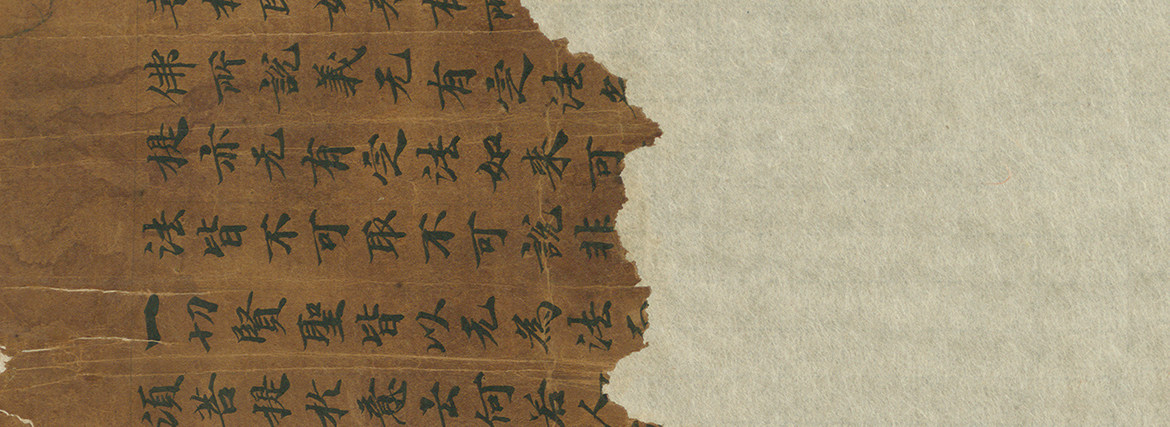 佛所說義无有定法名
提亦无有定法如來可
法皆不可取不可說非
一切賢聖皆以无為法
須菩提於意云何若人